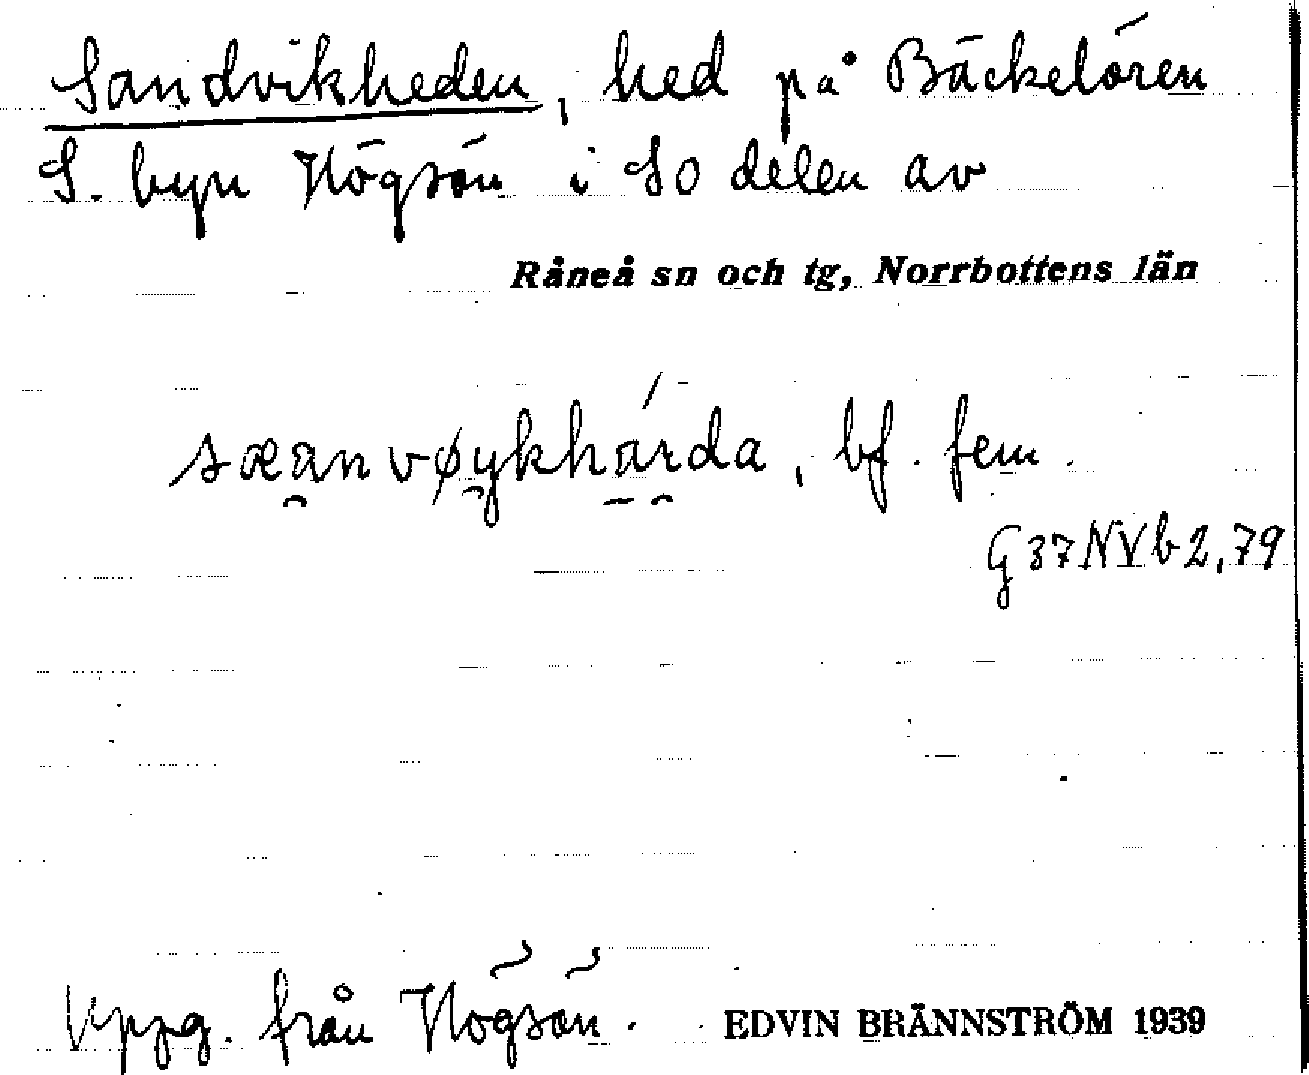 Sandvikheden, hed på Bäckelören
S. byn Högsön i SO delen av
Råneå sn och tg, Norrbottens län
sæanvøykhárda, bf. fem.
G 37 NV b 2, 79
Uppg. från Högsön. EDVIN BRÄNNSTRÖM 1939